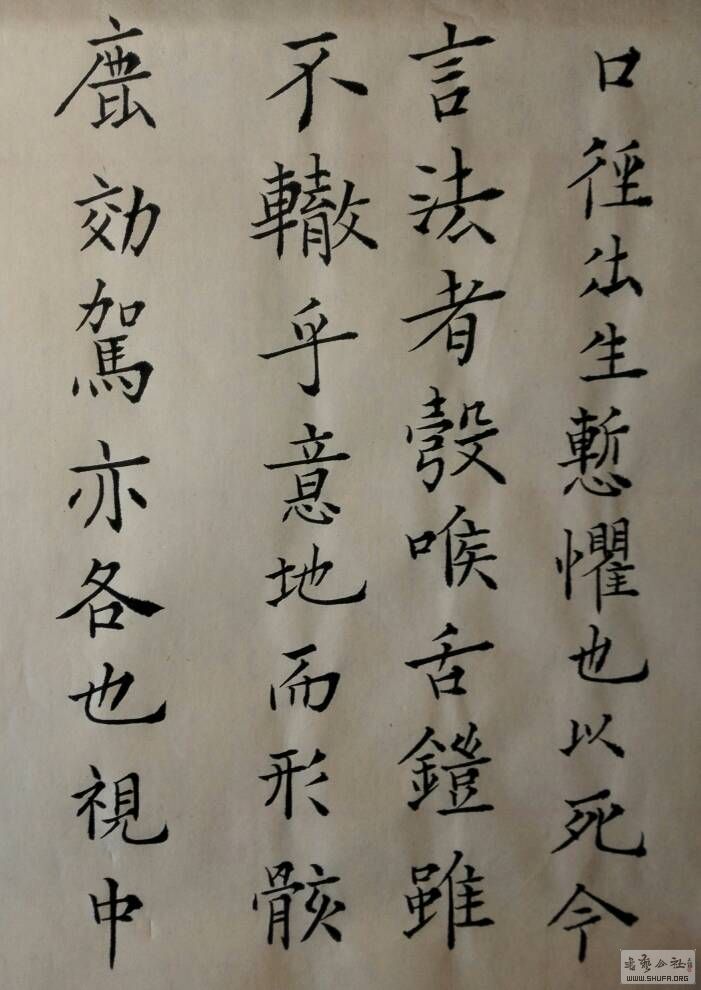 口徑出生慙懼也以死今
言法者彀喉舌鎧雖
不轍乎意地而形骸
鹿効駕亦各也視中
WWW.SHUFA.ORG